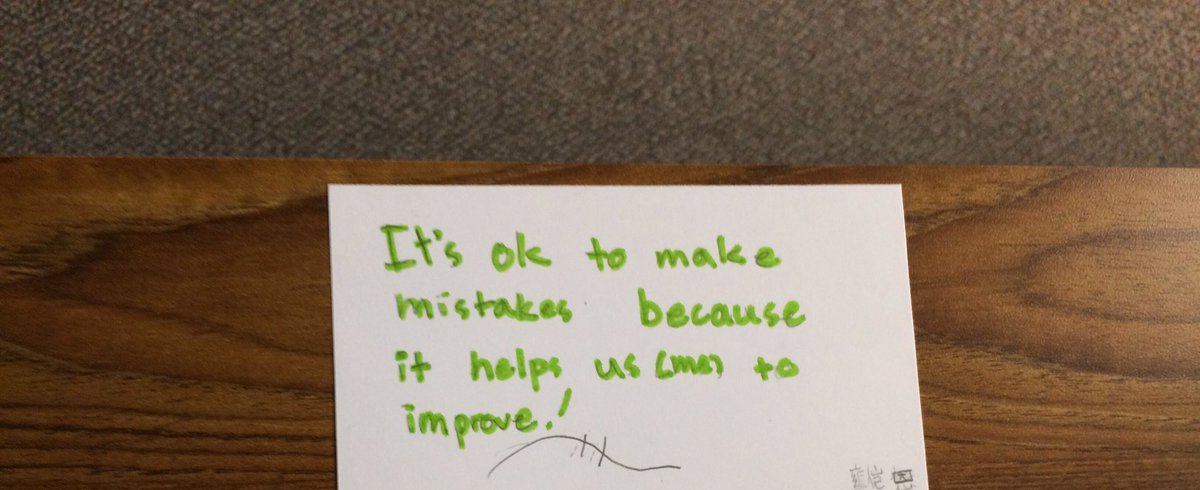 It's ok to make
mistakes because
it helps us (me) to
improve!